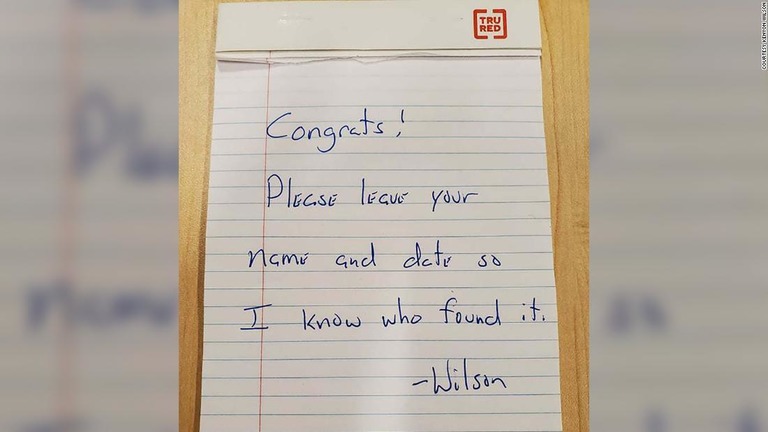 TRU
RED
Congrats!
Please leave your
name and date so
I know who found it.
-Wilson
COURTESY KENYON WILSON